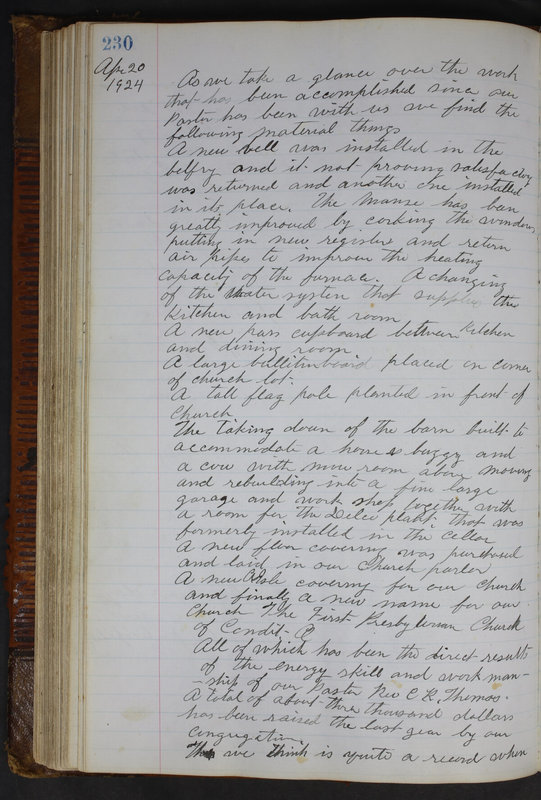 230
Apr 20
1924
As we take a glance over the work
that has been accomplished since our
Pastor has been with us we find the
following material things
A new bell was installed in the
belfry and it not proving satisfactory
was returned and another one installed
in its place. The Manse has been
greatly improved by corking the windows,
putting in new registers and return
air pipes to improve the heating
capacity of the furnace. A changing
of the water system that supplies the
kitchen and bath room
A new pass cupboard between kitchen
and dining room
A large bullitin board placed on corner
of church lot.
A tall flag pole planted in front of
Church
The taking down of the barn built to
accommodate a horse & buggy and
a cow with mow room above moving
and rebuilding into a fine large
garage and work shop together with
a room for the Delco plant that was
formerly installed in the cellar
A new floor covering was purchased
and laid in our Church parlor
A new covering for our Church
and finally a new name for our
Church The First Presbyterian Church
of Condit O
All of which has been the direct results
of the energy skill and workman-
-ship of our Pastor Rev C R. Thomas.
A total of about three thousand dollars
has been raised the last year by our
congregation.
This we think is quite a record when